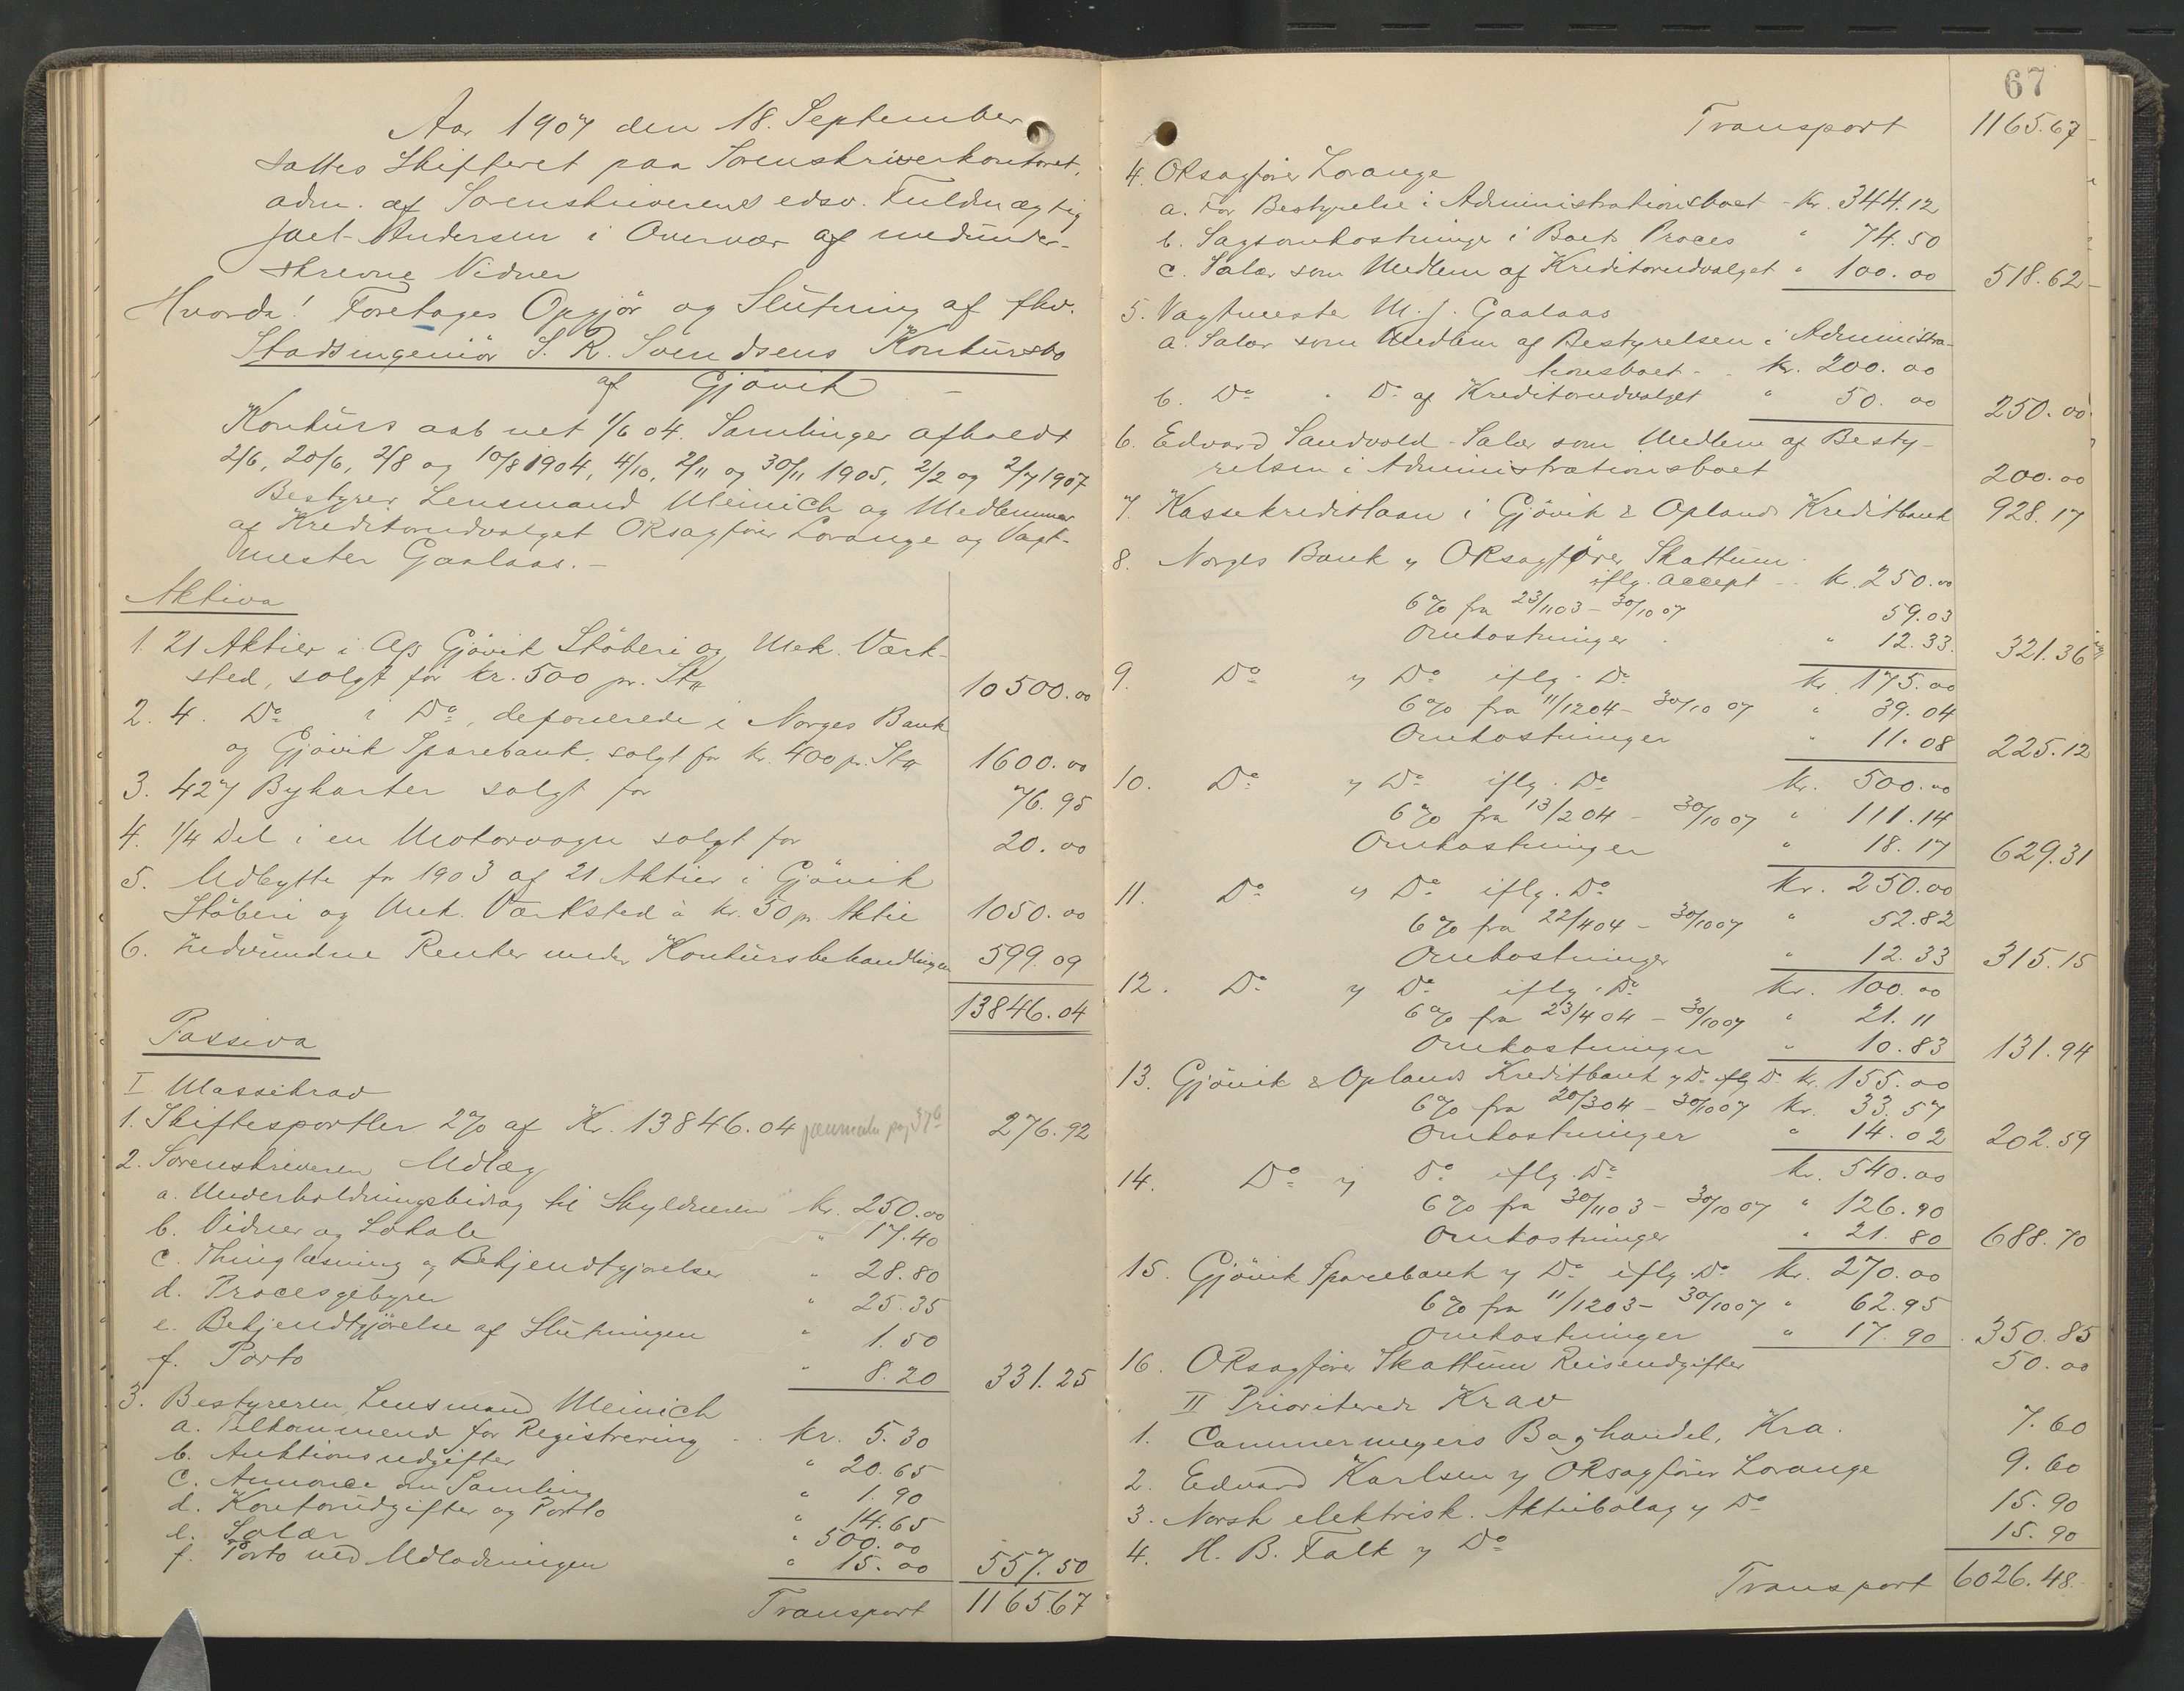 Aar 1907 den 18. September
sattes Skifteret paa Sorenskriverkontoret,
adm. af Sorenskriverens edsv. Fuldmægtig
Joel-Andersen i Overvær af medunder-
skrevne Vidner
Hvorda! Foretages Opgjör og Slutning af fhv.
Stadsingeniör S. R. Svendsens Konkursbo
af Gjövik –
Konkurs aabnet 1/6 04. Samlinger afholdt
2/6, 20/6, 2/8 og 10/8 1904, 4/10, 2/11 og 30/11 1905, 2/2 og 2/7 1907
Bestyrer Lensmand Meinich og Medlemmer
af Kreditorudvalget ORsagförer Lorange og Vagt-
mester Gaalaas. –
Aktiva
1. 21 Aktier i A/s Gjövik Stöberi og Mek. Værk-
sted, solgt for kr. 500 pr. Stk 10500.00
2. 4. Do i Do, deponerede i Norges Bank
og Gjövik Sparebank, solgt for kr. 400 pr. Stk 1600.00
3. 427 Bykarter solgt for 76.95
4. 1/4 Del i en Motorvogn solgt for 20.00
5. Udbytte for 1903 af 21 Aktier i Gjövik
Stöberi og Mek. Værksted à kr. 50 pr. Aktie 1050.00
6. Indvundne Renter under Konkursbehandlingen 599.09
13846.04
Passiva
I Massekrav
1. Skiftesportler 2% af Kr. 13846.04 276.92
2. Sorenskriveren Udlæg
a. Underholdningsbidrag til Skyldneren kr. 250.00
b. Vidner og Lokale " 17.40
c. Thinglæsning og Bekjendtgjörelser " 28.80
d. Procesgebyrer " 25.35
e. Bekjendtgjörelse af Slutningen " 1.50
f. Porto " 8.20 331.25
3. Bestyreren, Lensmand Meinich
a. Tilkommende for Registrering kr. 5.30
b. Auktionsudgifter " 20.65
c. Annonce om Samling " 1.90
d. Kontorudgifter og Porto " 14.65
e. Salær " 500.00
f. Porto ved Udlodningen " 15.00 557.50
Transport 1165.67
67
Transport 1165.67
4. ORsagförer Lorange
a. For Bestyrelse i Administrationsboet - Kr. 344.12
b. Sagsomkostninger i Boets Proces " 74.50
c. Salær som Medlem af Kreditorudvalget " 100.00 518.62
5. Vagtmester M. J. Gaalaas
a. Salær som Medlem af Bestyrelsen i Administra-
tionsboet - kr. 200.00
b. Do " Do af Kreditorudvalget " 50.00 250.00
6. Edvard Sandvold - Salær som Medlem af Besty-
relsen i Administrationsboet 200.00
7. Kassekreditlaan i Gjövik & Oplands Kreditbank 928.17
8. Norges Bank v ORsagförer Skattum
iflg. accept kr. 250.00
6% fra 23/11 03 - 30/10 07 59.03
Omkostninger " 12.33. 321.36
9. Do v Do iflg. Do kr. 175.00
6% fra 11/12 04 - 30/10 07 " 39.04
Omkostninger " 11.08 225.12
10. Do v Do iflg. Do kr. 500.00
6% fra 13/2 04 - 30/10 07 " 111.14
Omkostninger " 18.17 629.31
11. Do v Do iflg. Do kr. 250.00
6% fra 22/4 04 - 30/10 07 " 52.82
Omkostninger " 12.33 315.15
12. Do v Do iflg. Do kr. 100.00
6% fra 23/4 04 - 30/10 07 " 21.11
Omkostninger " 10.83 131.94
13. Gjövik & Oplands Kreditbank v Do iflg Do kr. 155.00
6% fra 20/3 04 - 30/10 07 kr. 33.57
Omkostninger " 14.02 202.59
14. Do v Do iflg. Do kr. 540.00
6% fra 30/11 03 - 30/10 07 " 126.90
Omkostninger " 21.80 688.70
15. Gjövik Sparebank v Do iflg. Do kr. 270.00
6% fra 11/12 03 - 30/10 07 " 62.95
Omkostninger " 17.90 350.85
16. ORsagförer Skattum Reiseudgifter 50.00
II Prioriterede Krav
1. Cammermeyers Boghandel, Kra. 7.60
2. Edvard Karlsen v ORsagförer Lorange 9.60
3. Norsk elektrisk. Aktiebolag v Do 15.90
4. H. B. Falk v Do 15.90
Transport 6026.48